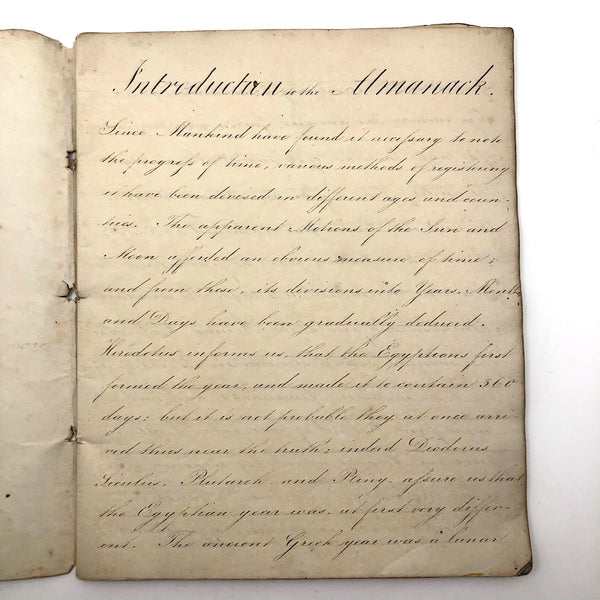 Introduction to the Almanack.
Since Mankind have found it necessary to note
the progress of time, various methods of registering
it have been devised in different ages and coun-
tries. The apparent Motions of the Sun and
Moon afforded an obvious measure of time;
and from these, its divisions into Years, Months
and Days have been gradually deduced.
Herodotus informs us, that the Egyptians first
formed the year, and made it to contain 360
days; but it is not probable they at once arri-
ved thus near the truth; indeed Diodorus
Siculus, Plutarch, and Pliny, assure us that
the Egyptian year was, at first very differ-
ent. The ancient Greek year was a lunar